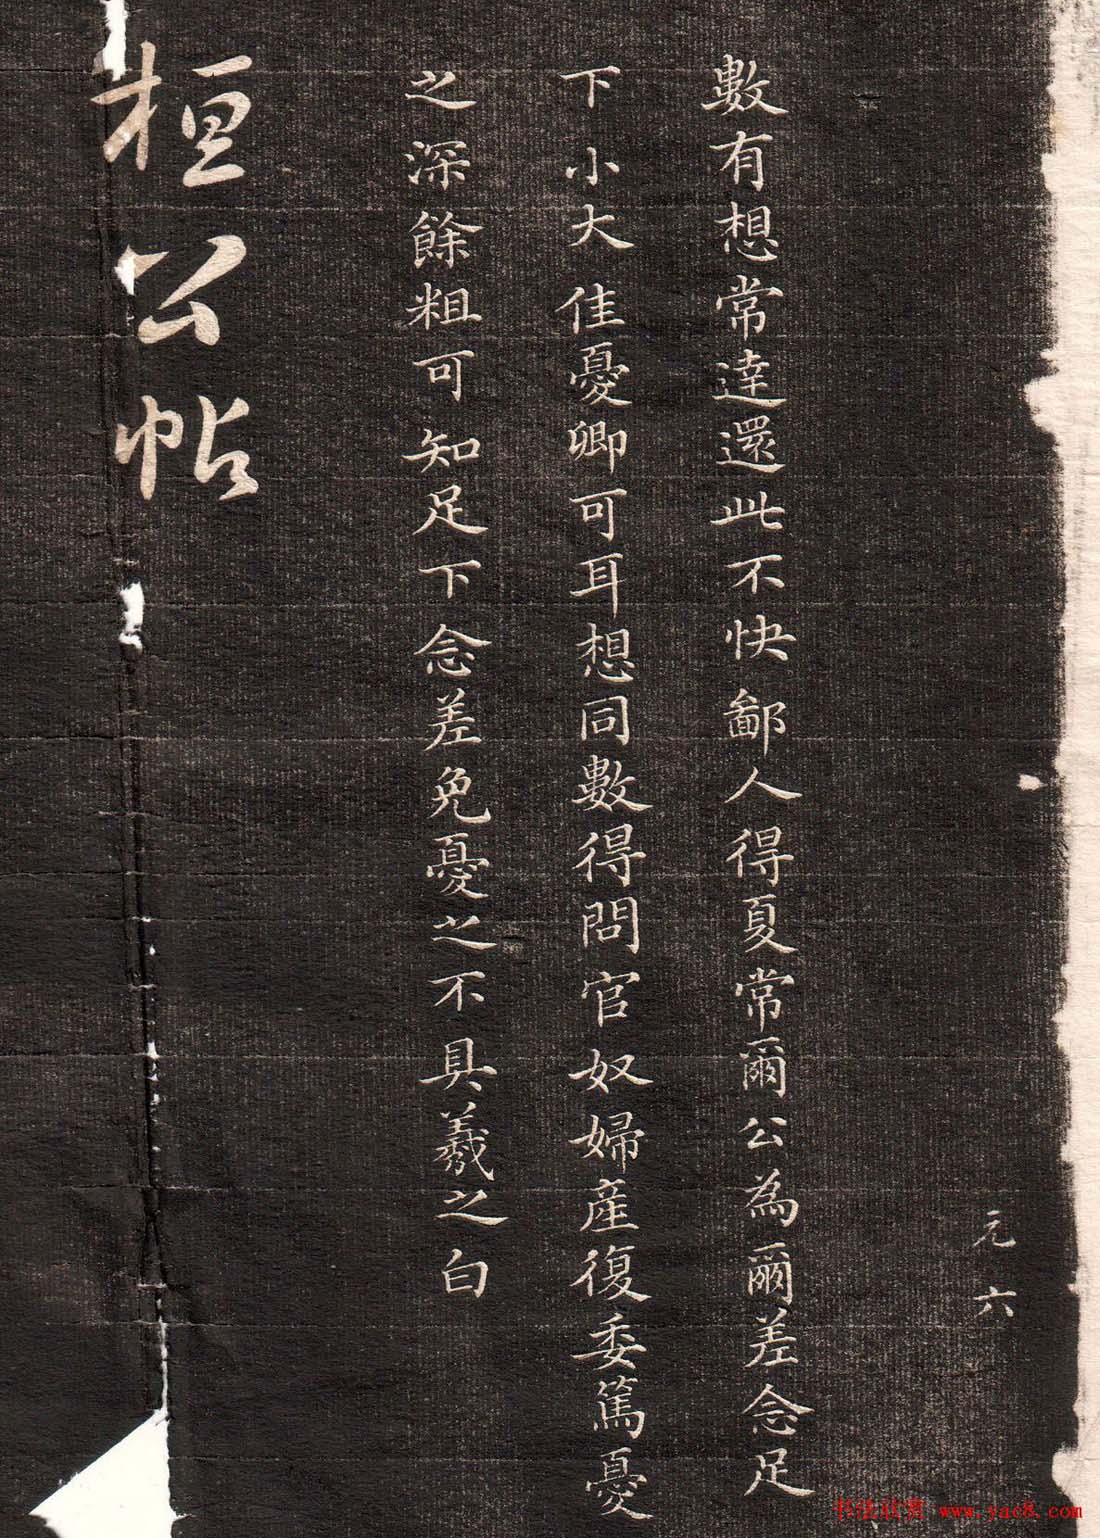 元六
數有想常達還此不快鄙人得夏常爾公為爾差念足
下小大佳憂卿可耳想同數得問官奴婦產復委篤憂
之深餘粗可知足下念差免憂之不具羲之白
桓公帖
书法欣赏 www.yac8.com